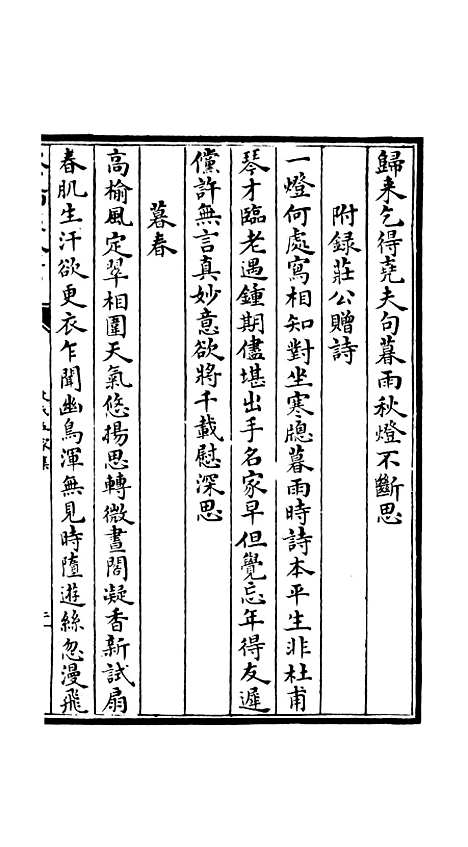 歸来乞得堯夫句暮雨秋燈不斷思
附録莊公贈詩
一燈何處寫相知對坐寒牕暮雨時詩本平生非杜甫
琴才臨老遇鍾期儘堪出手名家早但覺忘年得友遲
儻許無言真妙意欲將千載慰深思
暮春
高榆風定翠相圍天氣悠揚思轉微晝閤凝香新試扇
春肌生汗欲更衣乍聞幽鳥渾無見時墮遊絲忽漫飛